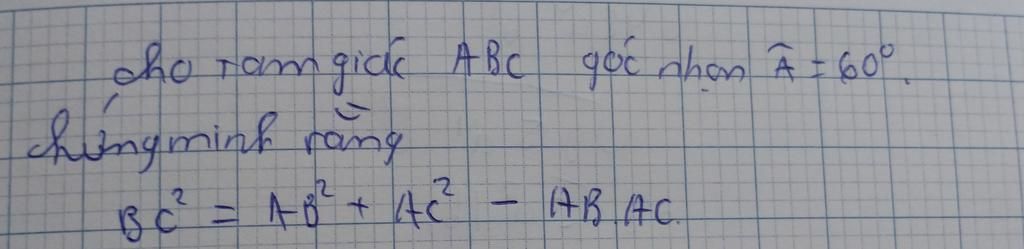 cho tam giác ABC góc nhọn Â = 60°.
Chứng minh rằng
BC² = AB² + AC² - AB.AC.